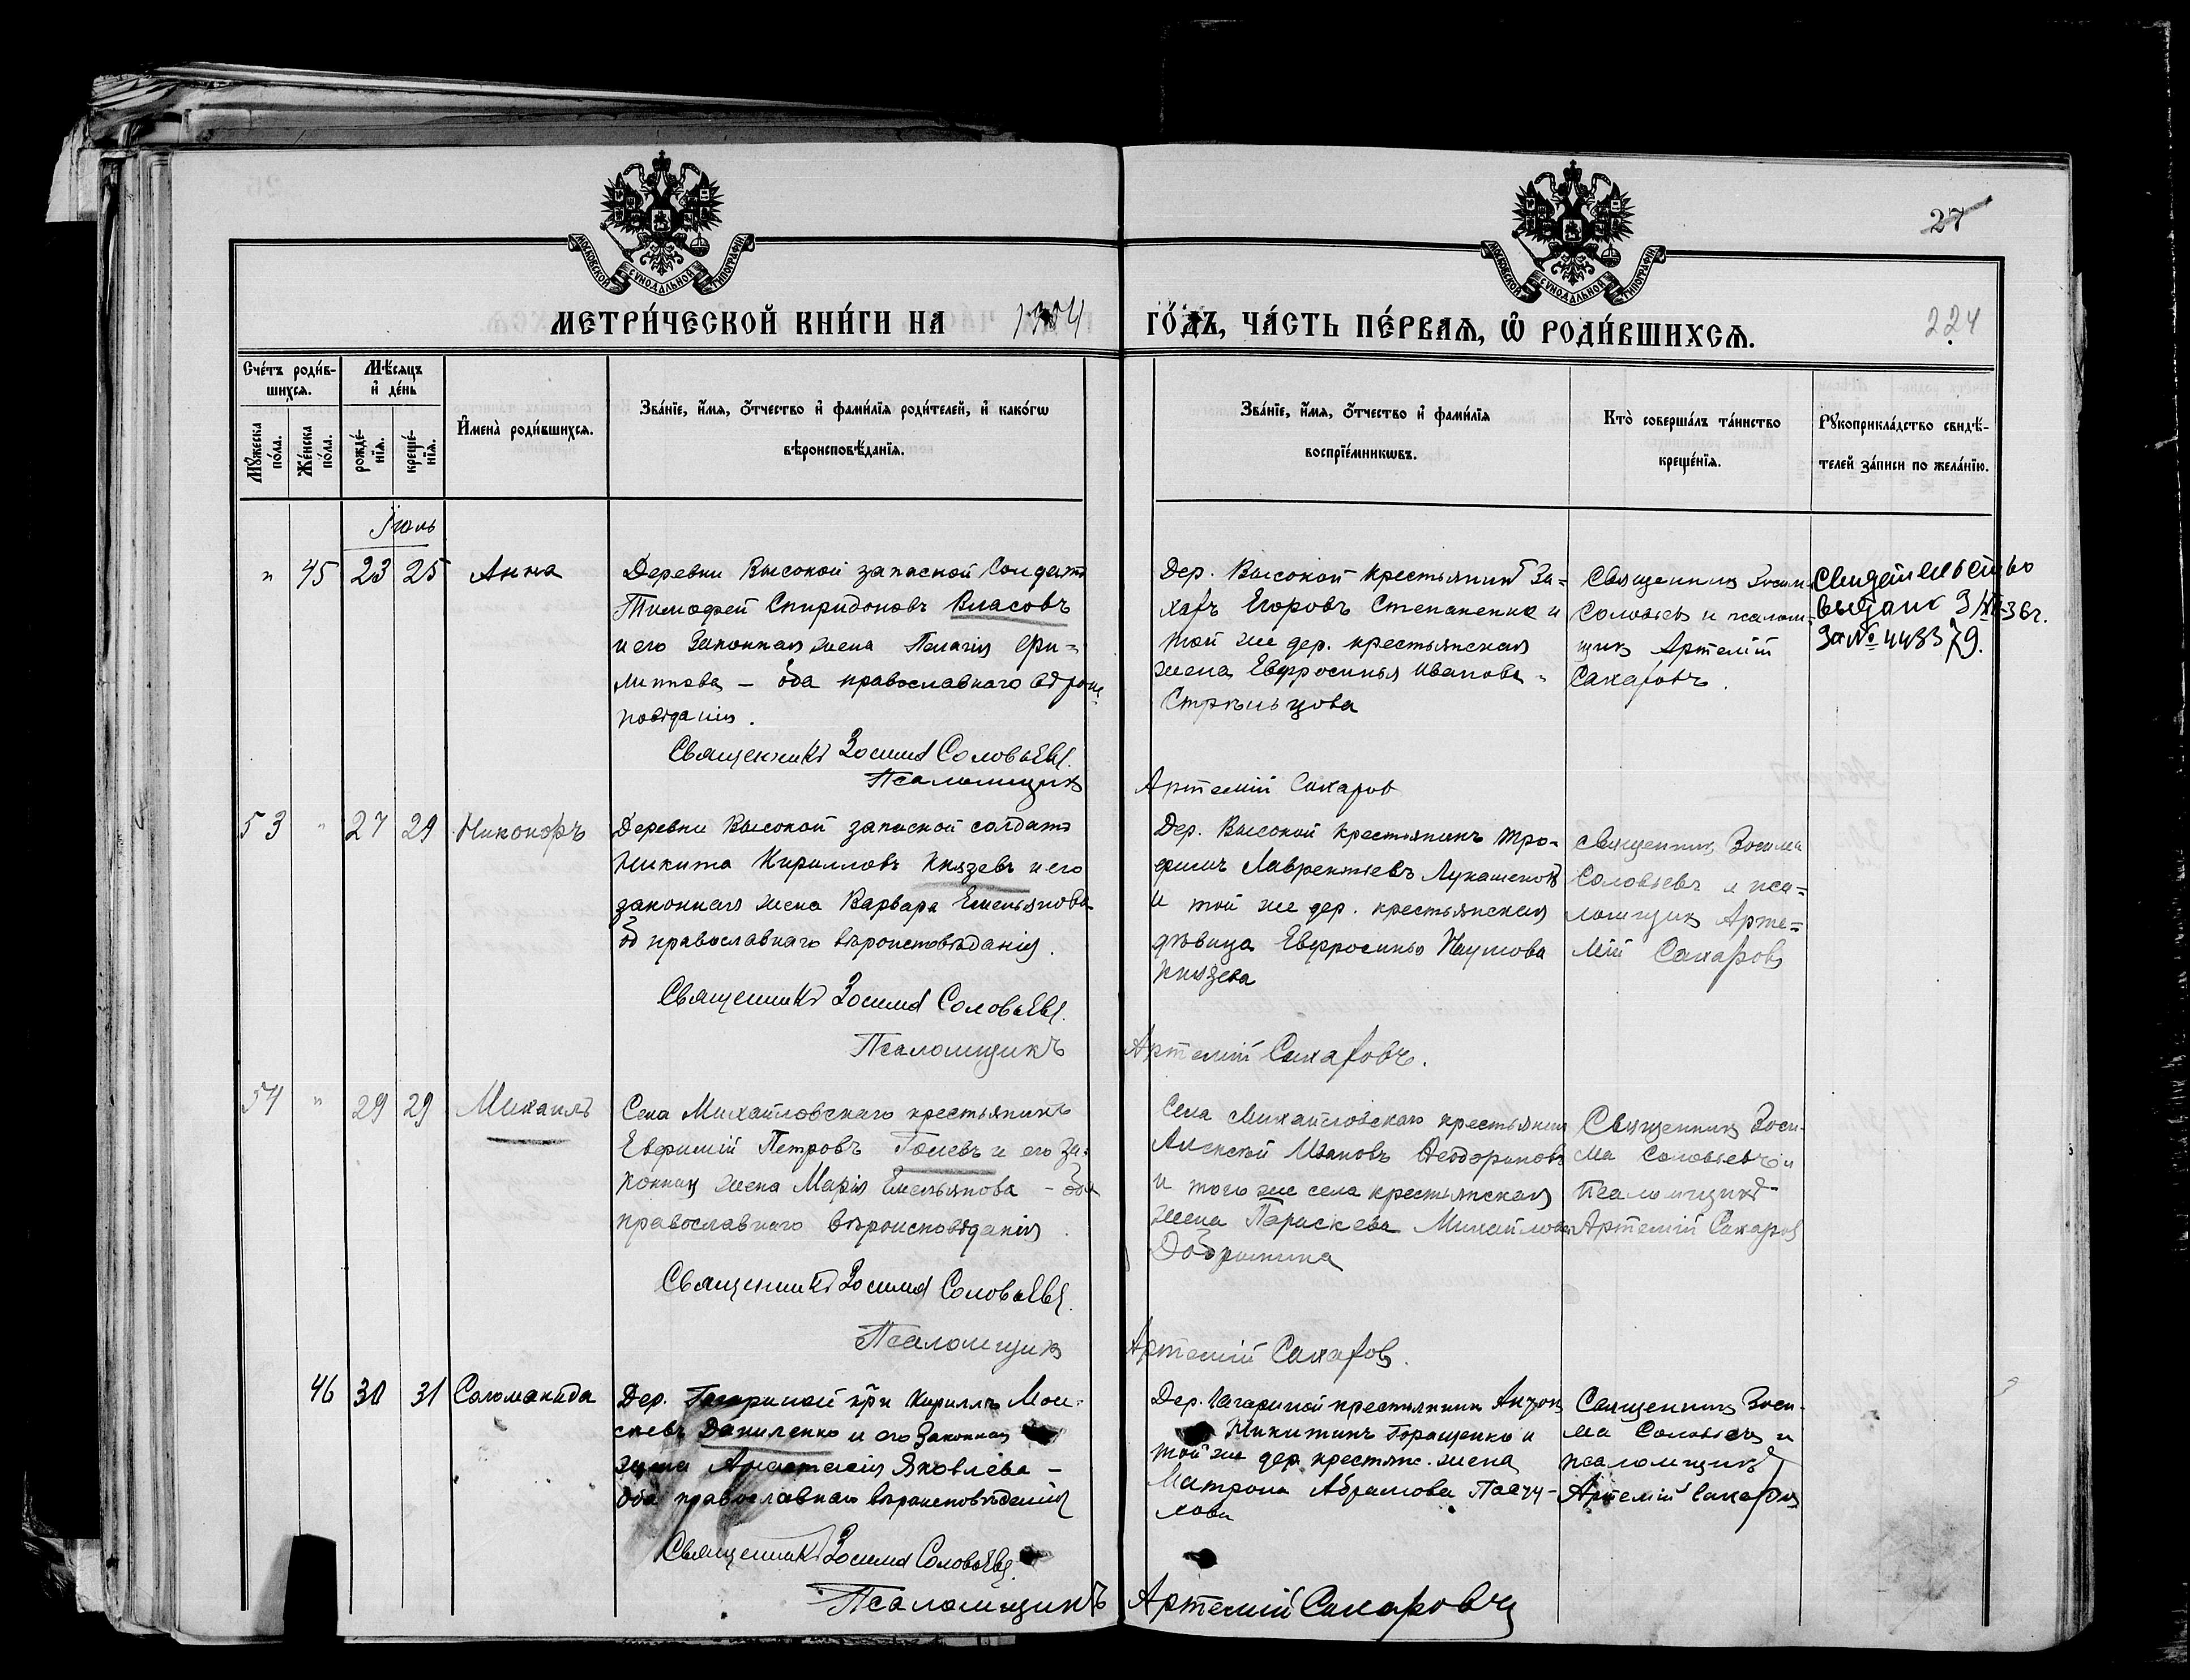 МОСКОВСКОЙ СУНОДАЛЬНОЙ ТИПОГРАФІИ
МОСКОВСКОЙ СУНОДАЛЬНОЙ ТИПОГРАФІИ
27
МЕТРИ́ЧЕСКОЙ КНИ́ГИ НА
ГО́ДЪ, ЧА́СТЬ ПЕ́РВАѦ, Ѡ҆ РОДИ́ВШИХСѦ.
224
Сче́тъ роди́в-
шихсѧ.
Мѣ́сѧцъ
и҆ де́нь
Мꙋ́жеска по́ла.
Же́нска по́ла.
рожде́-нїѧ.
креще́-нїѧ.
И҆мена̀ роди́вшихсѧ.
Зва́нїе, и҆́мѧ, ѻ҆́тчество и҆ фами́лїѧ роди́телей, и҆ како́гѡ
вѣроисповѣ́данїѧ.
Зва́нїе, и҆́мѧ, ѻ҆́тчество и҆ фами́лїѧ
воспрїе́мникѡвъ.
Кто̀ соверша́лъ та́инство
креще́нїѧ.
Рꙋкоприкла́дство свидѣ́-
телей за́писи по жела́нїю.
Іюль
" 45 23 25 Анна
Деревни Высокой запасной Солдатъ
Тимофей Спиридоновъ Власовъ
и его Законная жена Пелагія Фи-
липпова – оба православнаго вѣроис-
повѣданія.
Священникъ Зосима Соловьевъ.
Псаломщикъ
Дер. Высокой крестьянинъ За-
харъ Егоровъ Степаненко и
той же дер. крестьянская
жена Евфросинья Иванова
Стрѣльцова
Артемій Сахаров
Священникъ Зосима
Соловьев и псалом-
щикъ Артемій
Сахаровъ.
Свидетельство
выдано 3/XII-36г.
За № 443379.
53 " 27 29 Никоноръ
Деревни Высокой запасной солдатъ
Никита Кирилловъ Князевъ и его
законная жена Варвара Емельянова
об православнаго вѣроисповѣданія.
Священникъ Зосима Соловьевъ.
Псаломщикъ
Дер. Высокой крестьянинъ Тро-
фимъ Лаврентьевъ Лукашенко
и той же дер. крестьянская
дѣвица Евфросинья Наумова
Князева
Артемій Сахаровъ.
священникъ Зосима
Соловьевъ и пса-
ломщикъ Арте-
мій Сахаровъ
54 " 29 29 Михаилъ
Села Михайловскаго крестьянинъ
Евфимій Петровъ Голевъ и его за-
конная жена Марія Емельянова – оба
православнаго вѣроисповѣданія.
Священникъ Зосима Соловьевъ.
Псаломщикъ
Села Михайловскаго крестьянин
Алексѣй Ивановъ
и того же села крестьянская
жена Параскева Михайлова
Добрынина
Артемій Сахаровъ.
Священникъ Зоси-
ма Соловьевъ и
псаломщикъ
Артемій Сахаровъ
46 30 31 Соломанида
Дер. Гагариной кр-н Кириллъ Мои-
сеевъ Даниленко и его Законная
жена Анастасія Яковлева –
оба православнаго вѣроисповѣданія
Священникъ Зосима Соловьевъ.
Псаломщикъ
Дер. Гагариной крестьянинъ Антонъ
Никитинъ Горащенко и
той же дер. крестьян. жена
Матрона Абрамова
Артемій Сахаровъ
Священникъ Зоси-
ма Соловьевъ и
псаломщикъ
Артемій Сахаровъ